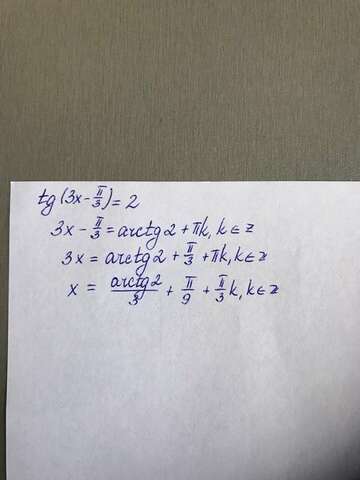 tg(3x - π/3) = 2
3x - π/3 = arctg2 + πk, k ∈ z
3x = arctg2 + π/3 + πk, k ∈ z
x = arctg2/3 + π/9 + π/3 k, k ∈ z